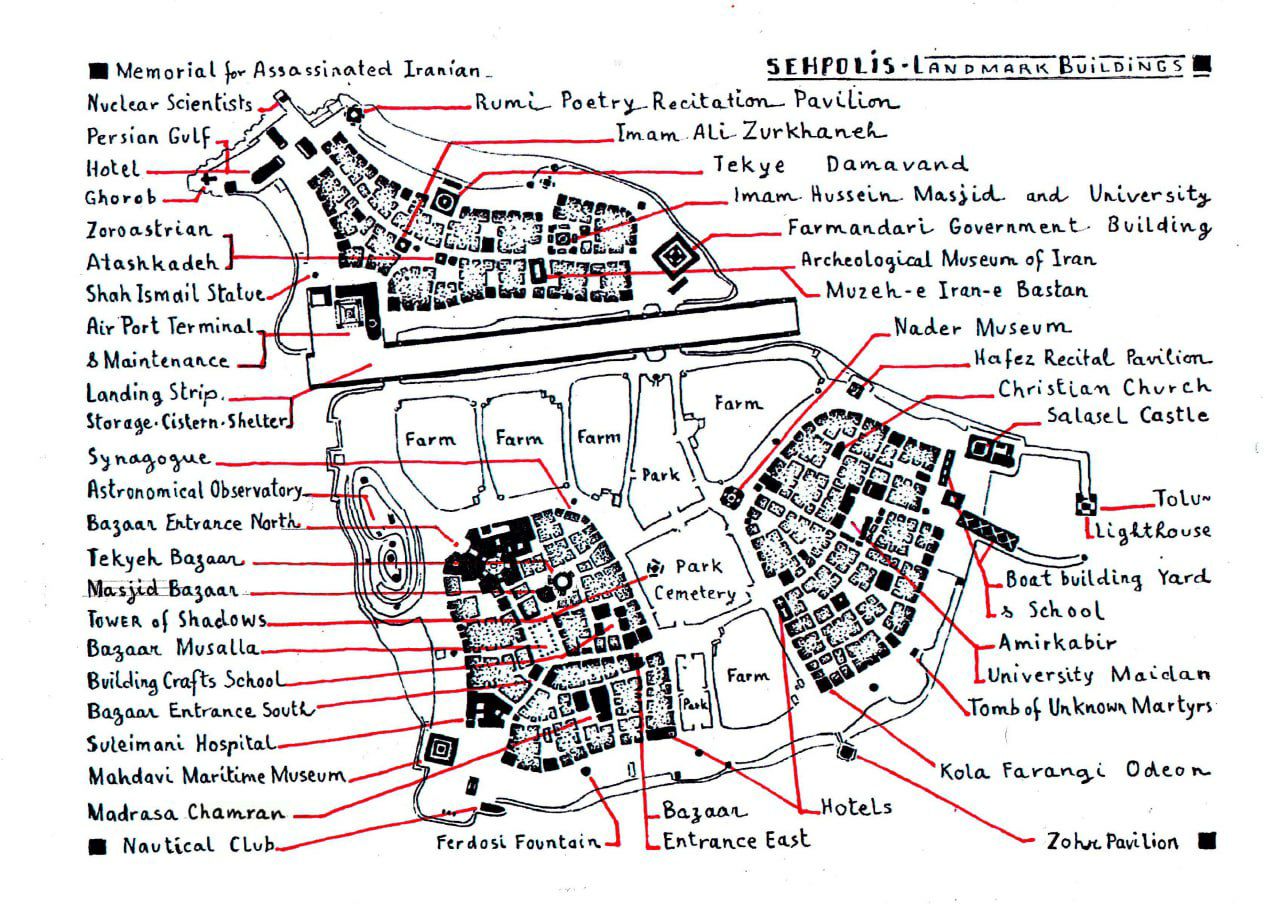 SEHPOLIS - LANDMARK BUILDINGS
Memorial for Assassinated Iranian
Nuclear Scientists
Persian Gulf
Hotel
Ghorob
Zoroastrian
Atashkadeh
Shah Ismail Statue
Air Port Terminal
& Maintenance
Landing Strip.
Storage.Cistern.Shelter
Synagogue
Astronomical Observatory
Bazaar Entrance North
Tekyeh Bazaar
Masjid Bazaar
Tower of Shadows
Bazaar Musalla
Building Crafts School
Bazaar Entrance South
Suleimani Hospital
Mahdavi Maritime Museum
Madrasa Chamran
Nautical Club
Rumi Poetry Recitation Pavilion
Imam Ali Zurkhaneh
Tekye Damavand
Imam Hussein Masjid and University
Farmandari Government Building
Archeological Museum of Iran
Muzeh-e Iran-e Bastan
Nader Museum
Hafez Recital Pavilion
Christian Church
Salasel Castle
Tolu~
Lighthouse
Boat building Yard
& School
Amirkabir
University Maidan
Tomb of Unknown Martyrs
Kola Farangi Odeon
Zohr Pavilion
Hotels
Bazaar
Entrance East
Ferdosi Fountain
Farm
Farm
Farm
Farm
Park
Park
Cemetery
Farm
Park